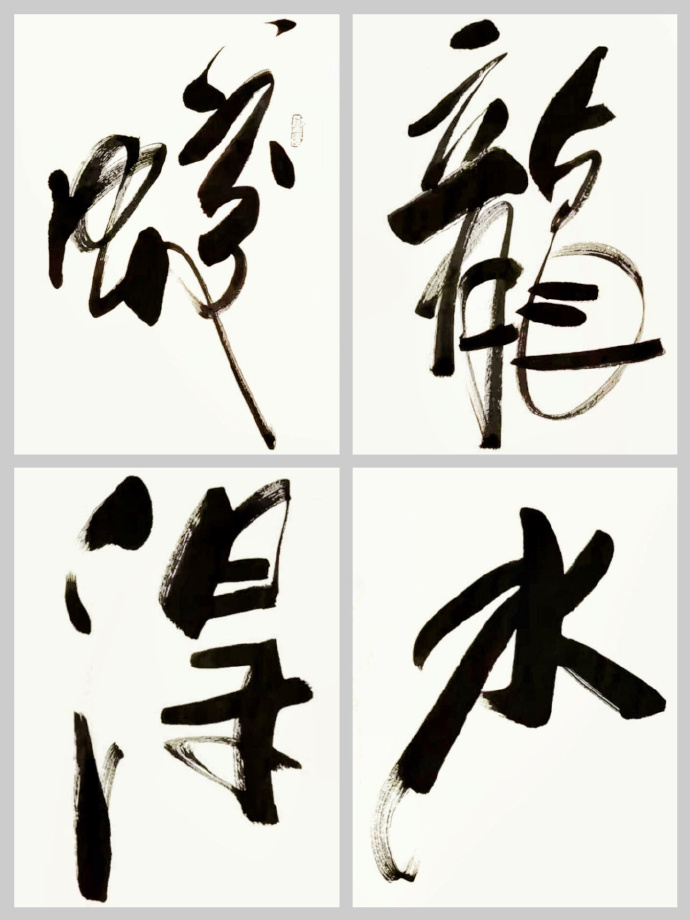 蛟龍
得水